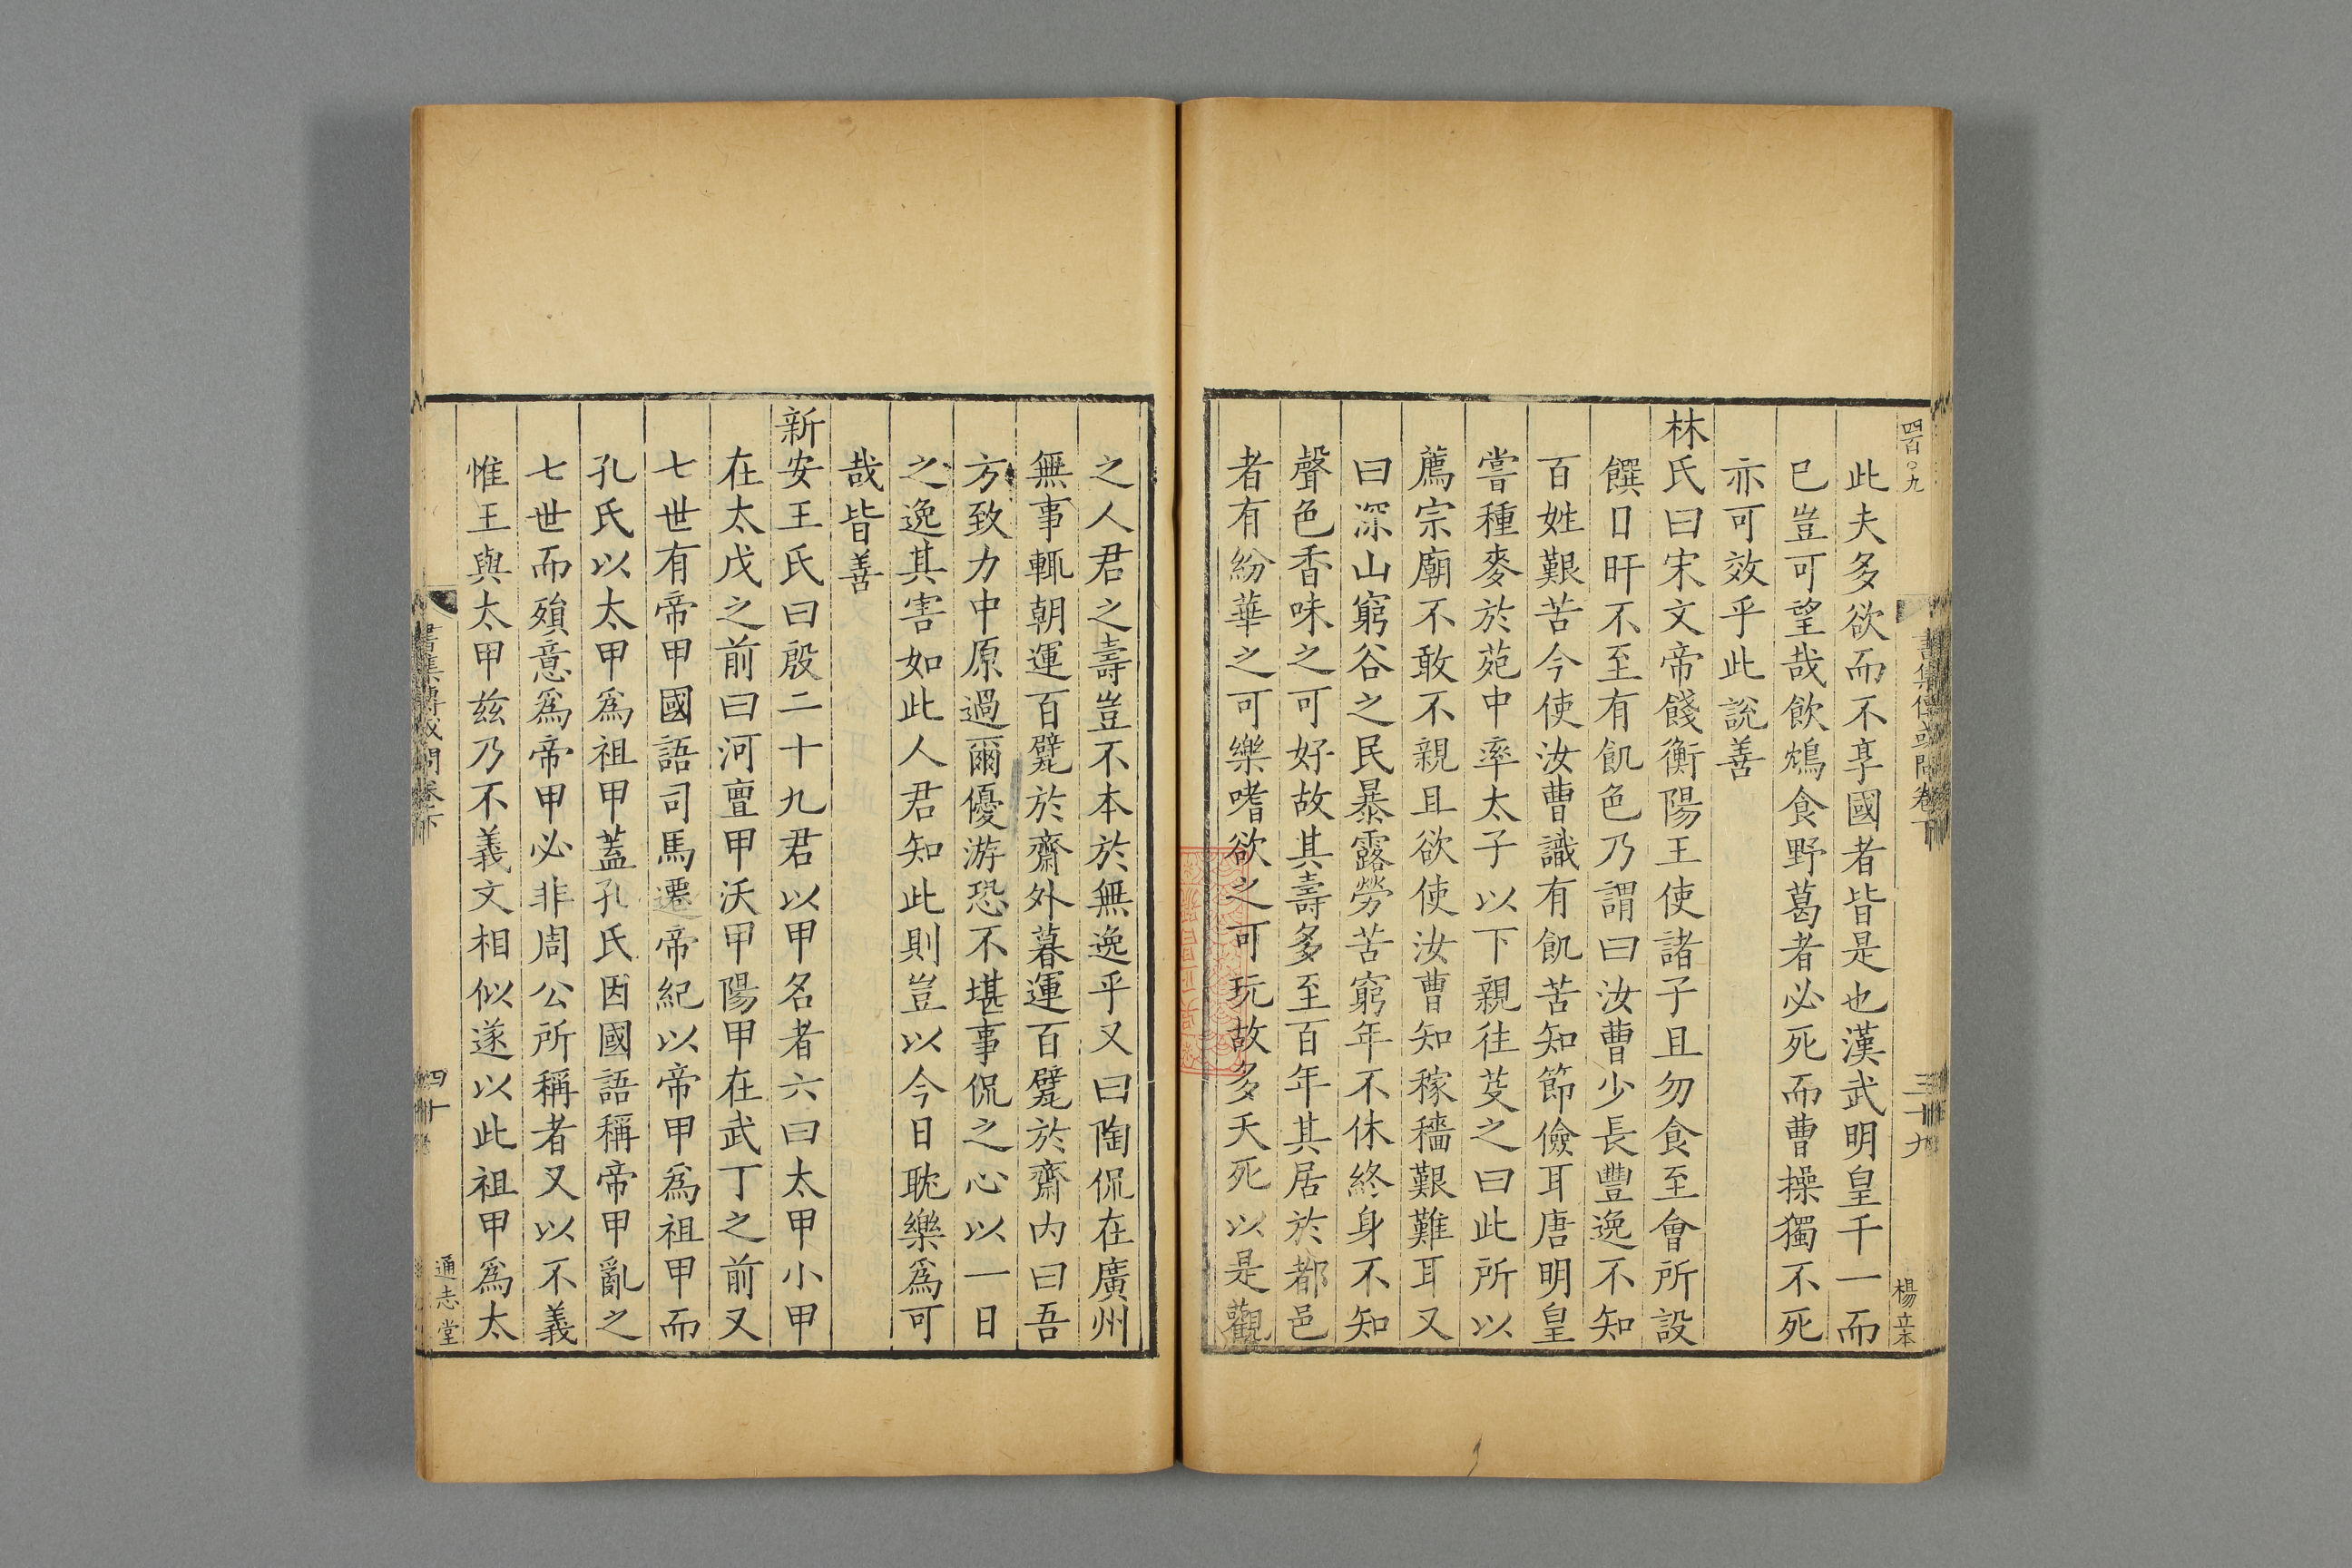 四百〇九
書集傳或問卷下
三十九
楊立本
此夫多欲而不享國者皆是也漢武明皇千一而
已豈可望哉飲鴆食野葛者必死而曹操獨不死
亦可效乎此說善
林氏曰宋文帝餞衡陽王使諸子且勿食至會所設
饌日旰不至有飢色乃謂曰汝曹少長豐逸不知
百姓艱苦今使汝曹識有飢苦知節儉耳唐明皇
嘗種麥於苑中率太子以下親往芟之曰此所以
薦宗廟不敢不親且欲使汝曹知稼穡艱難耳又
曰深山窮谷之民暴露勞苦窮年不休終身不知
聲色香味之可好故其壽多至百年其居於都邑
者有紛華之可樂嗜欲之可玩故多夭死以是觀
之人君之壽豈不本於無逸乎又曰陶侃在廣州
無事輒朝運百甓於齋外暮運百甓於齋內曰吾
方致力中原過爾優游恐不堪事侃之心以一日
之逸其害如此人君知此則豈以今日耽樂爲可
哉皆善
新安王氏曰殷二十九君以甲名者六曰太甲小甲
在太戊之前曰河亶甲沃甲陽甲在武丁之前又
七世有帝甲國語司馬遷帝紀以帝甲爲祖甲而
孔氏以太甲爲祖甲蓋孔氏因國語稱帝甲亂之
七世而殞意爲帝甲必非周公所稱者又以不義
惟王與太甲兹乃不義文相似遂以此祖甲爲太
書集傳或問卷下
四十
通志堂